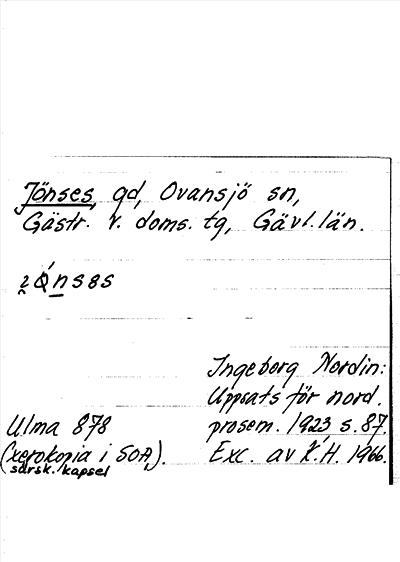 Jönses, gd, Ovansjö sn,
Gästr. v. doms. tg, Gävl. län.
Ingeborg Nordin:
Uppsats för nord.
prosem. 1923 s. 87.
Exc. av K.H. 1966.
Ulma 878
(xerokopia i SOA,
särsk. kapsel).